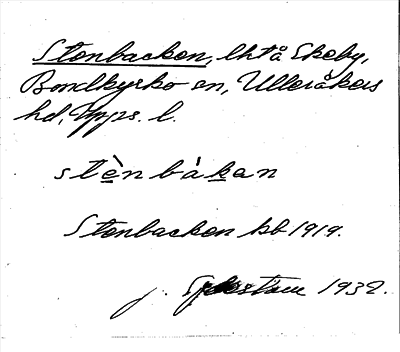 Stenbacken, lht å Ekeby,
Bondkyrko sn, Ulleråkers
hd, Upps. l.
stènbàkan
Stenbacken kb 1919.
J. 1932.